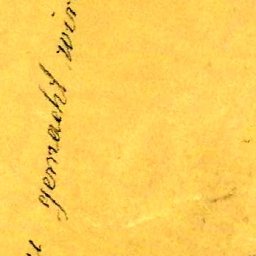 gemacht wir